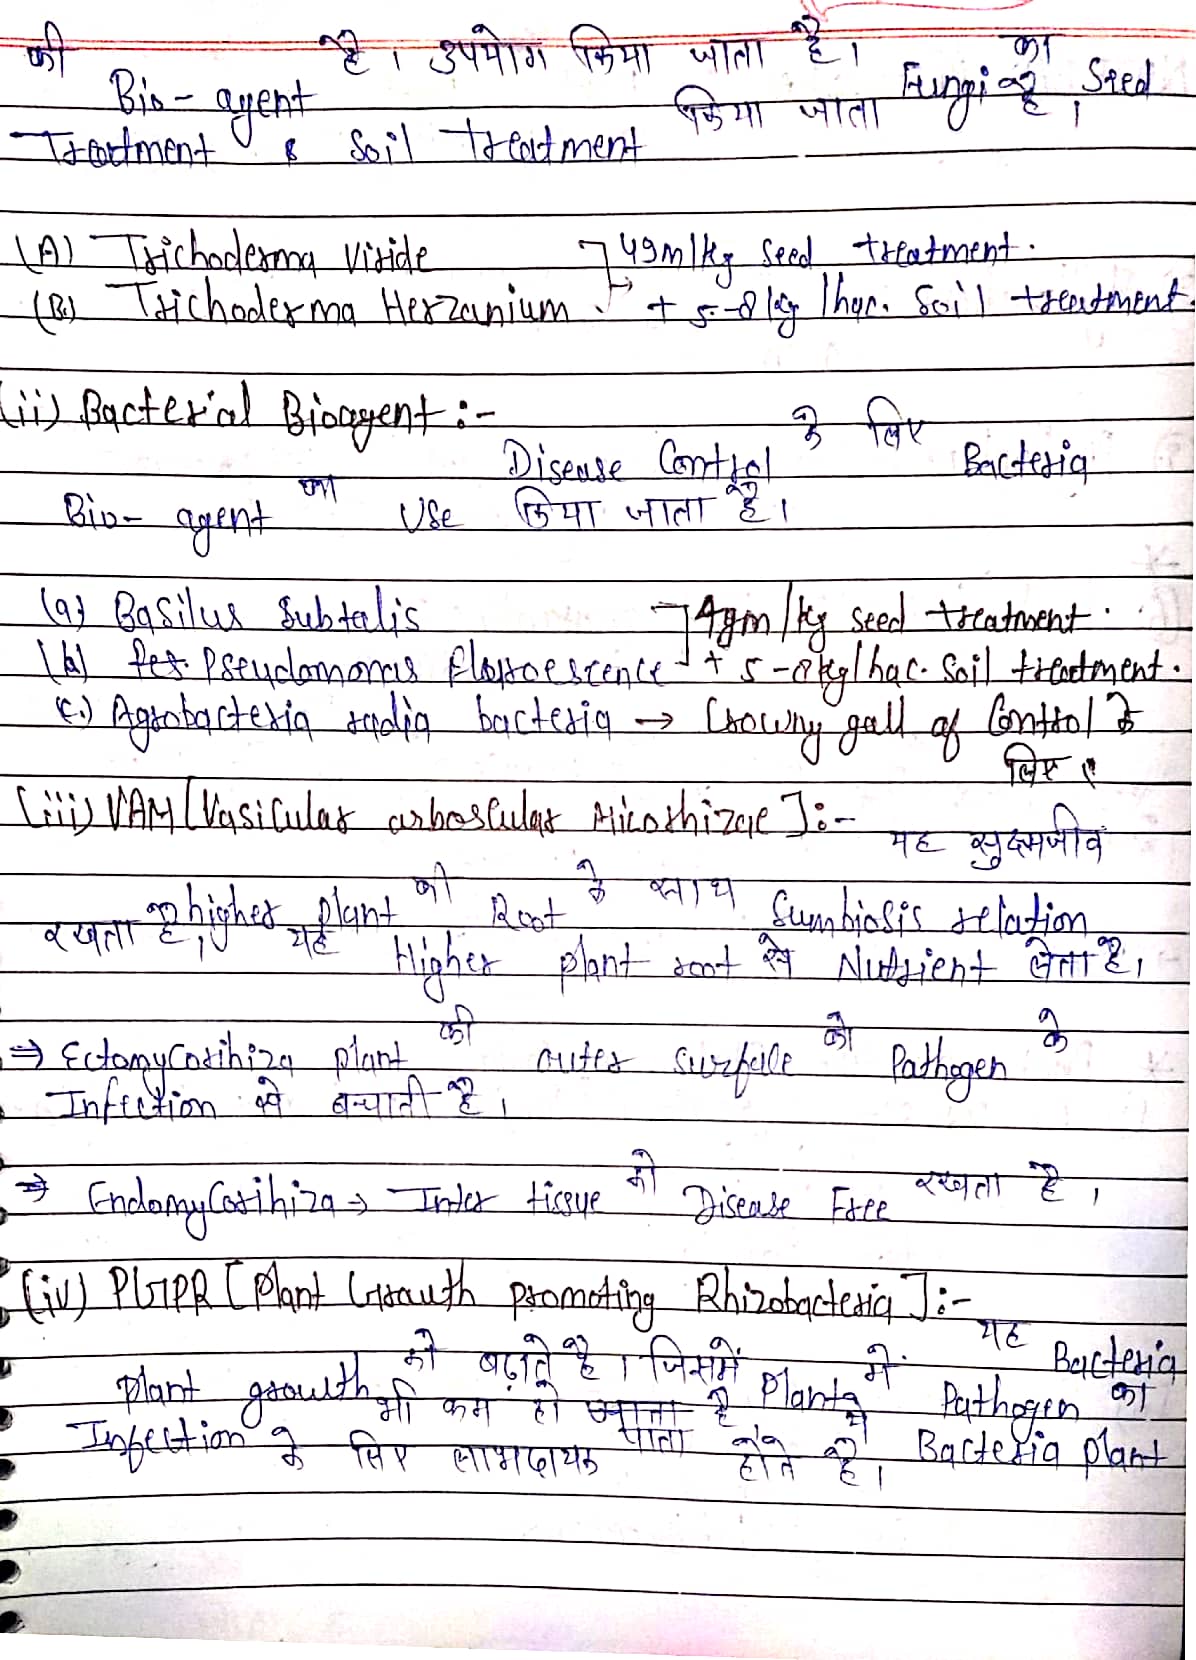 की है। उपयोग किया जाता है। का
Bio-agent किया जाता Fungi है। Seed
Treatment & Soil treatment
(A) Trichoderma Viride 4gm/kg Seed treatment.
(B) Trichoderma Herzanium. + 5-8 kg/hac. Soil treatment.
(ii) Bacterial Bioagent:-
Disease Control के लिए Bacteria
Bio-agent का Use किया जाता है।
(a) Basilus Subtalis 4gm/kg seed treatment.
(b) Pseudomonas floproescence + 5-8kg/hac. Soil treatment.
(c.) Agrobacteria radia bacteria → Crowny gall of Control के
लिए।
(iii) VAM [Vasicular arboscular Micorhizae]:-
यह सुक्ष्मजीव
higher plant की Root के साथ Sumbiosis relation
रखता है, यह Higher plant root से Nutrient लेता है।
⇒ Ectomycorihiza plant की outer surface को Pathogen के
Infection से बचाती है।
⇒ Endomycorihiza → Inter tissue को Disease Free रखता है।
(iv) PGPR [Plant Growth promoting Rhizobacteria]:-
यह Bacteria
plant growth को बढ़ाते है। जिसमें Plant में Pathogen का
Infection भी कम हो जाता है Bacteria plant
के लिए लाभदायक होते है।